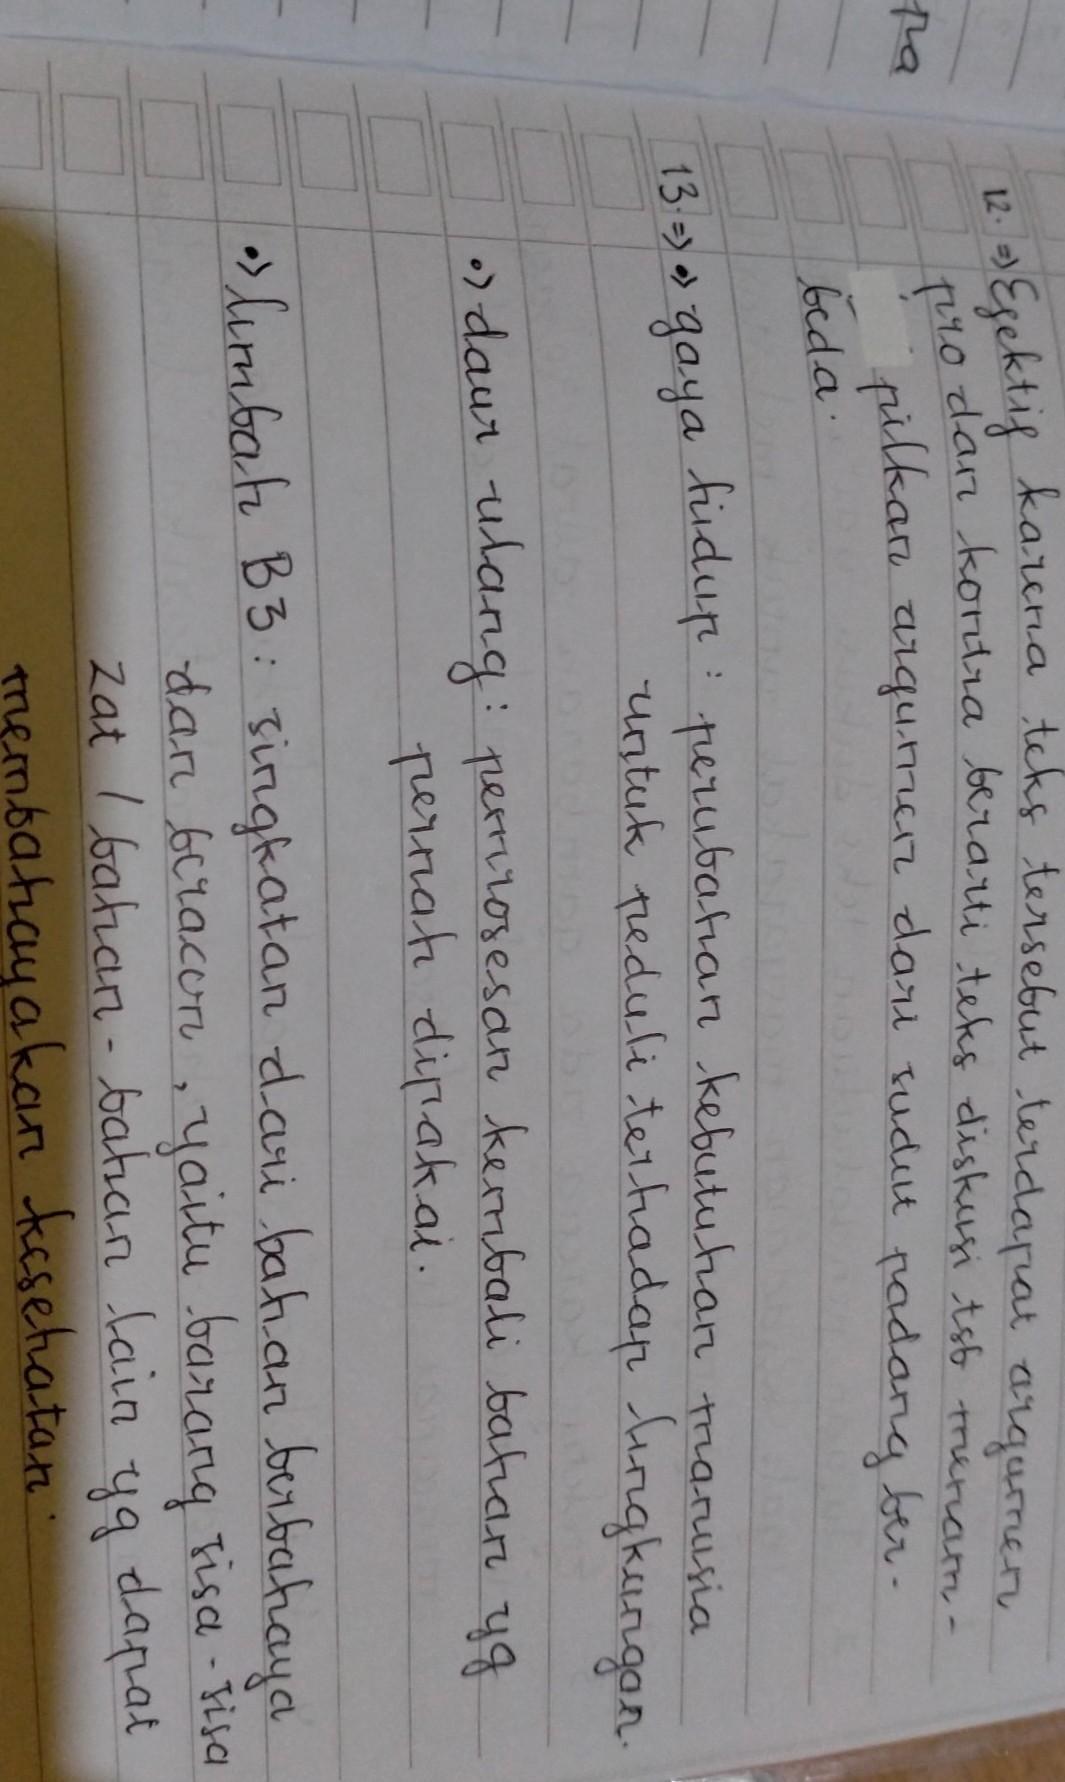 na
12. => Efektif karena teks tersebut terdapat argumen
pro dan kontra berarti teks diskusi tsb menam-
pilkan argumen dari sudut padang ber-
beda.
13. => •> gaya hidup : perubahan kebutuhan manusia
untuk peduli terhadap lingkungan.
•> daur ulang : pemrosesan kembali bahan yg
pernah dipakai.
•> limbah B3 : singkatan dari bahan berbahaya
dan beracun, yaitu barang sisa-sisa
zat / bahan-bahan lain yg dapat
membahayakan kesehatan.